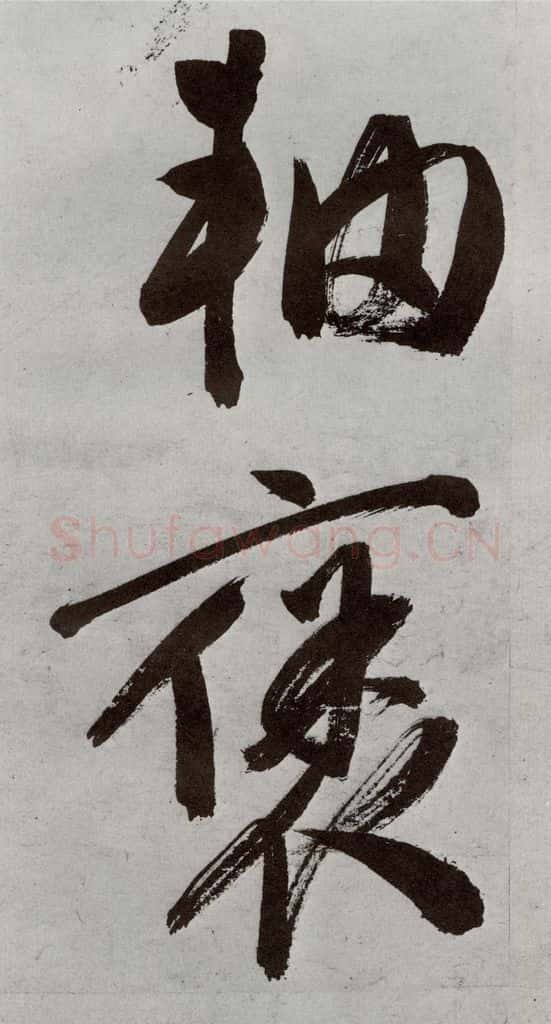 軸
褒
Shufawang.CN